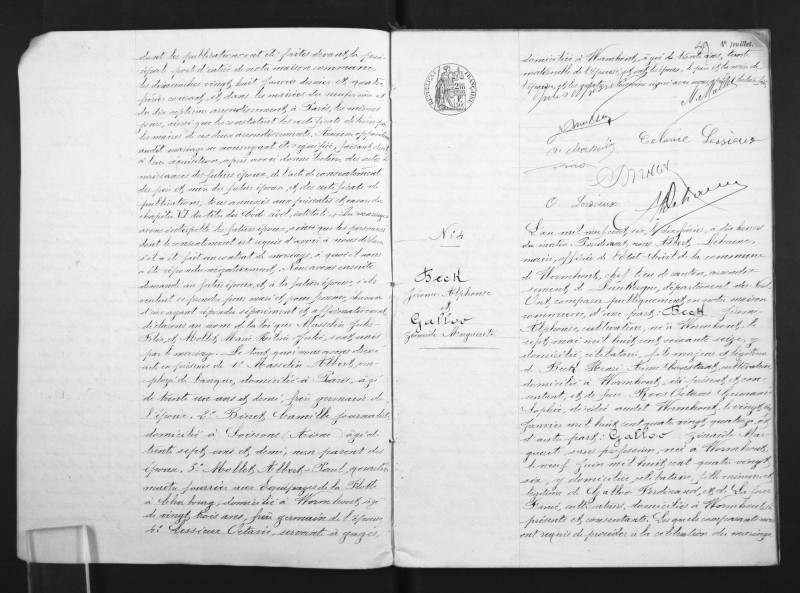 dont les publications ont été faites devant la prin-
cipale porte d'entrée de notre maison commune
les dimanches vingt huit janvier dernier et quatre
février courant, et dans les mairies des
du dix septième arrondissement à Paris, les mêmes
jours, ainsi que le constatent les certificats délivrés par
les maires de ces deux arrondissements. Aucune opposition
audit mariage ne nous ayant été signifiée, faisant droit
à leur réquisition, après avoir donné lecture des actes de
naissance des futurs époux, de l'acte de consentement
des père et mère du futur époux, et des certificats de
publications, tous annexés aux présentes et
chapitre VI du titre du Code civil, intitulé : du mariage
avons interpellé les futurs époux, ainsi que les personnes
dont le consentement est requis d'avoir à nous déclarer
s'il a été fait un contrat de mariage, à quoi il nous
a été répondu négativement. Nous avons ensuite
demandé au futur époux, et à la future épouse s'ils
veulent se prendre pour mari et pour femme, chacun
d'eux ayant répondu séparément et affirmativement,
déclarons au nom de la loi que Masselin Jules
Félix, et Mollet Marie sont unis
par le mariage. Le tout quoi nous avons dressé
acte en présence de 1° Masselin Albert, em-
ployé de banque, domicilié à Paris, âgé
de trente un ans et demi, frère germain de
l'époux. 2° Bénet Camille, journalier,
domicilié à Soissons (Aisne) âgé de
trente sept ans et demi, non parent des
époux. 3° Mollet Albert Paul, quartier
maître fourrier aux Equipages de la Flotte
à Cherbourg, domicilié à Wormhout, âgé
de vingt trois ans, frère germain de l'épouse
4° Lessieux Octavie, servante à gages,
4e feuillet.
domiciliée à Wormhout, âgée de trente ans, tante
maternelle de l'épouse, et ont les époux, le père et la mère de
l'épouse, et les quatre témoins signé avec nous après lecture faite
M. Mollet
Celarie Lessieux
O. Lessieux
REPUBLIQUE FRANÇAISE
N° 4
Beck
Jérôme Alphonse
et
Galloo
Zénaïde Marguerite
L'an mil neuf cent six, le dix février, à dix heures
du matin. Pardevant, nous Albert Dehaene,
maire, officier de l'état civil de la commune
de Wormhout, chef lieu de canton, arrondis-
sement de Dunkerque, département du Nord
Ont comparu publiquement en notre maison
commune, d'une part : Beck Jérôme
Alphonse, cultivateur, né à Wormhout, le
sept mai mil huit cent soixante seize, y
domicilié, célibataire, fils majeur et légitime
de Beck Henri Aimé Constant, cultivateur
domicilié à Wormhout, ici présent et con-
sentant, et de feue Roos Octavie Germaine
Sophie, décédée audit Wormhout, le vingt
janvier mil huit cent quatre vingt quatorze, et
d'autre part : Galloo Zénaïde Mar-
guerite, sans profession, née à Wormhout,
le neuf juin mil huit cent quatre vingt
six, y domiciliée, célibataire, fille mineure et
légitime de Galloo Ferdinand, et de
cultivateurs, domiciliés à Wormhout, ici
présents et consentants. Lesquels comparants nous
ont requis de procéder à la célébration du mariage